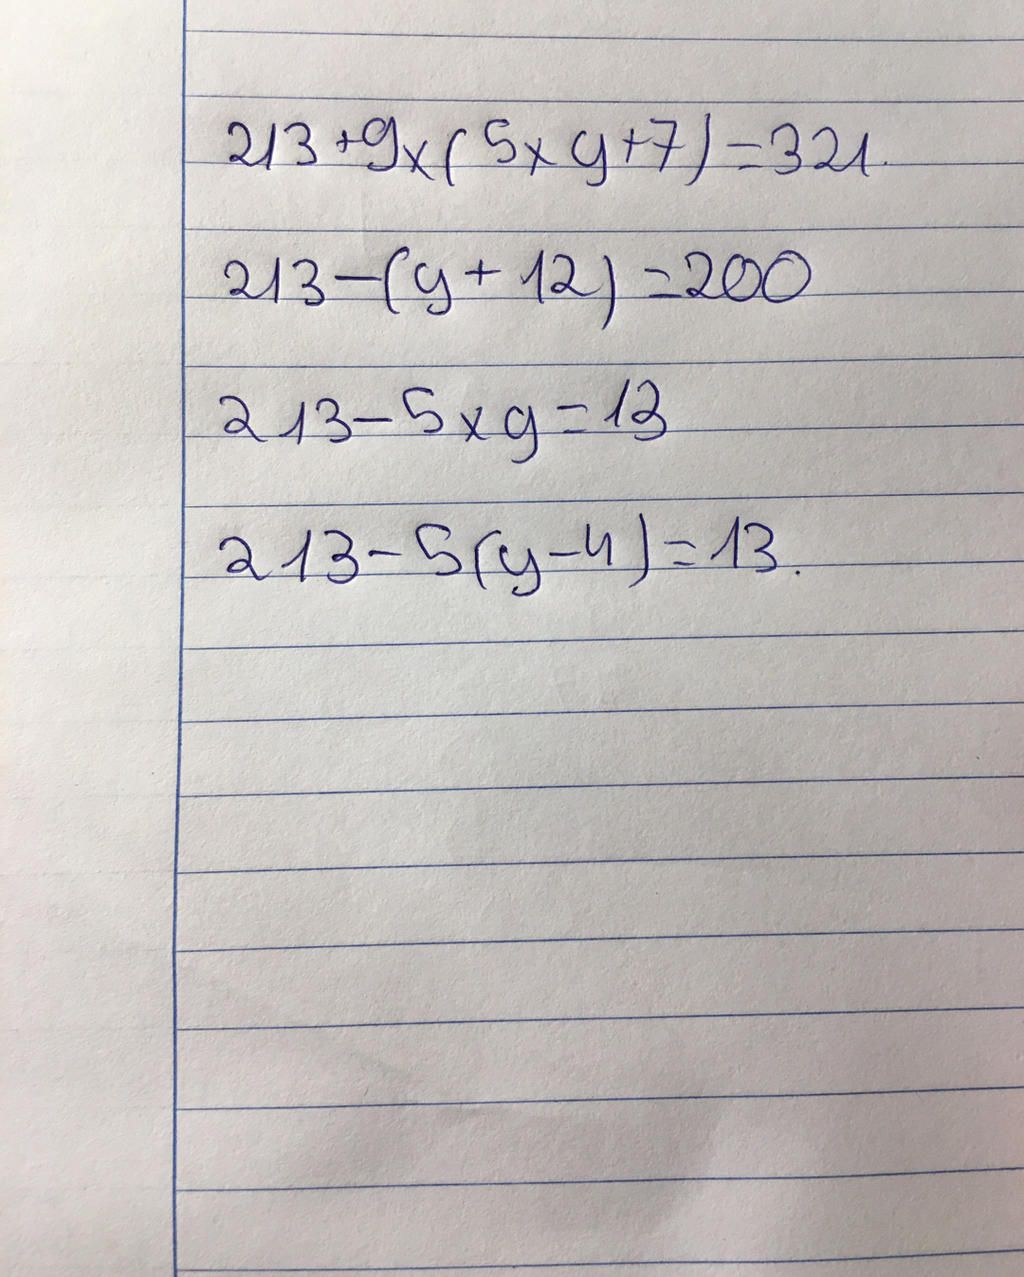 213+9x(5xy+7)=321.
213-(y+12)=200
213-5xy=13
213-5(y-4)=13.